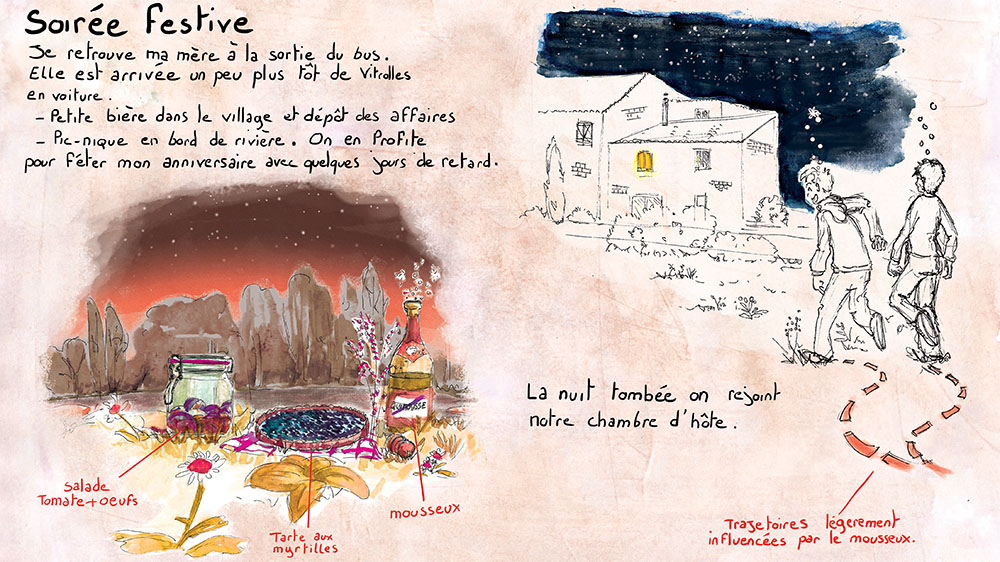 Soirée Festive
Je retrouve ma mère à la sortie du bus.
Elle est arrivée un peu plus tôt de Vitrolles
en voiture.
- Petite bière dans le village et dépôt des affaires
- Pic-nique en bord de rivière. On en Profite
pour fêter mon anniversaire avec quelques jours de retard.
Salade
Tomate+oeufs
Tarte aux
myrtilles
mousseux
La nuit tombée on rejoint
notre chambre d'hôte.
Trajetoires légerement
influencées par le mousseux.